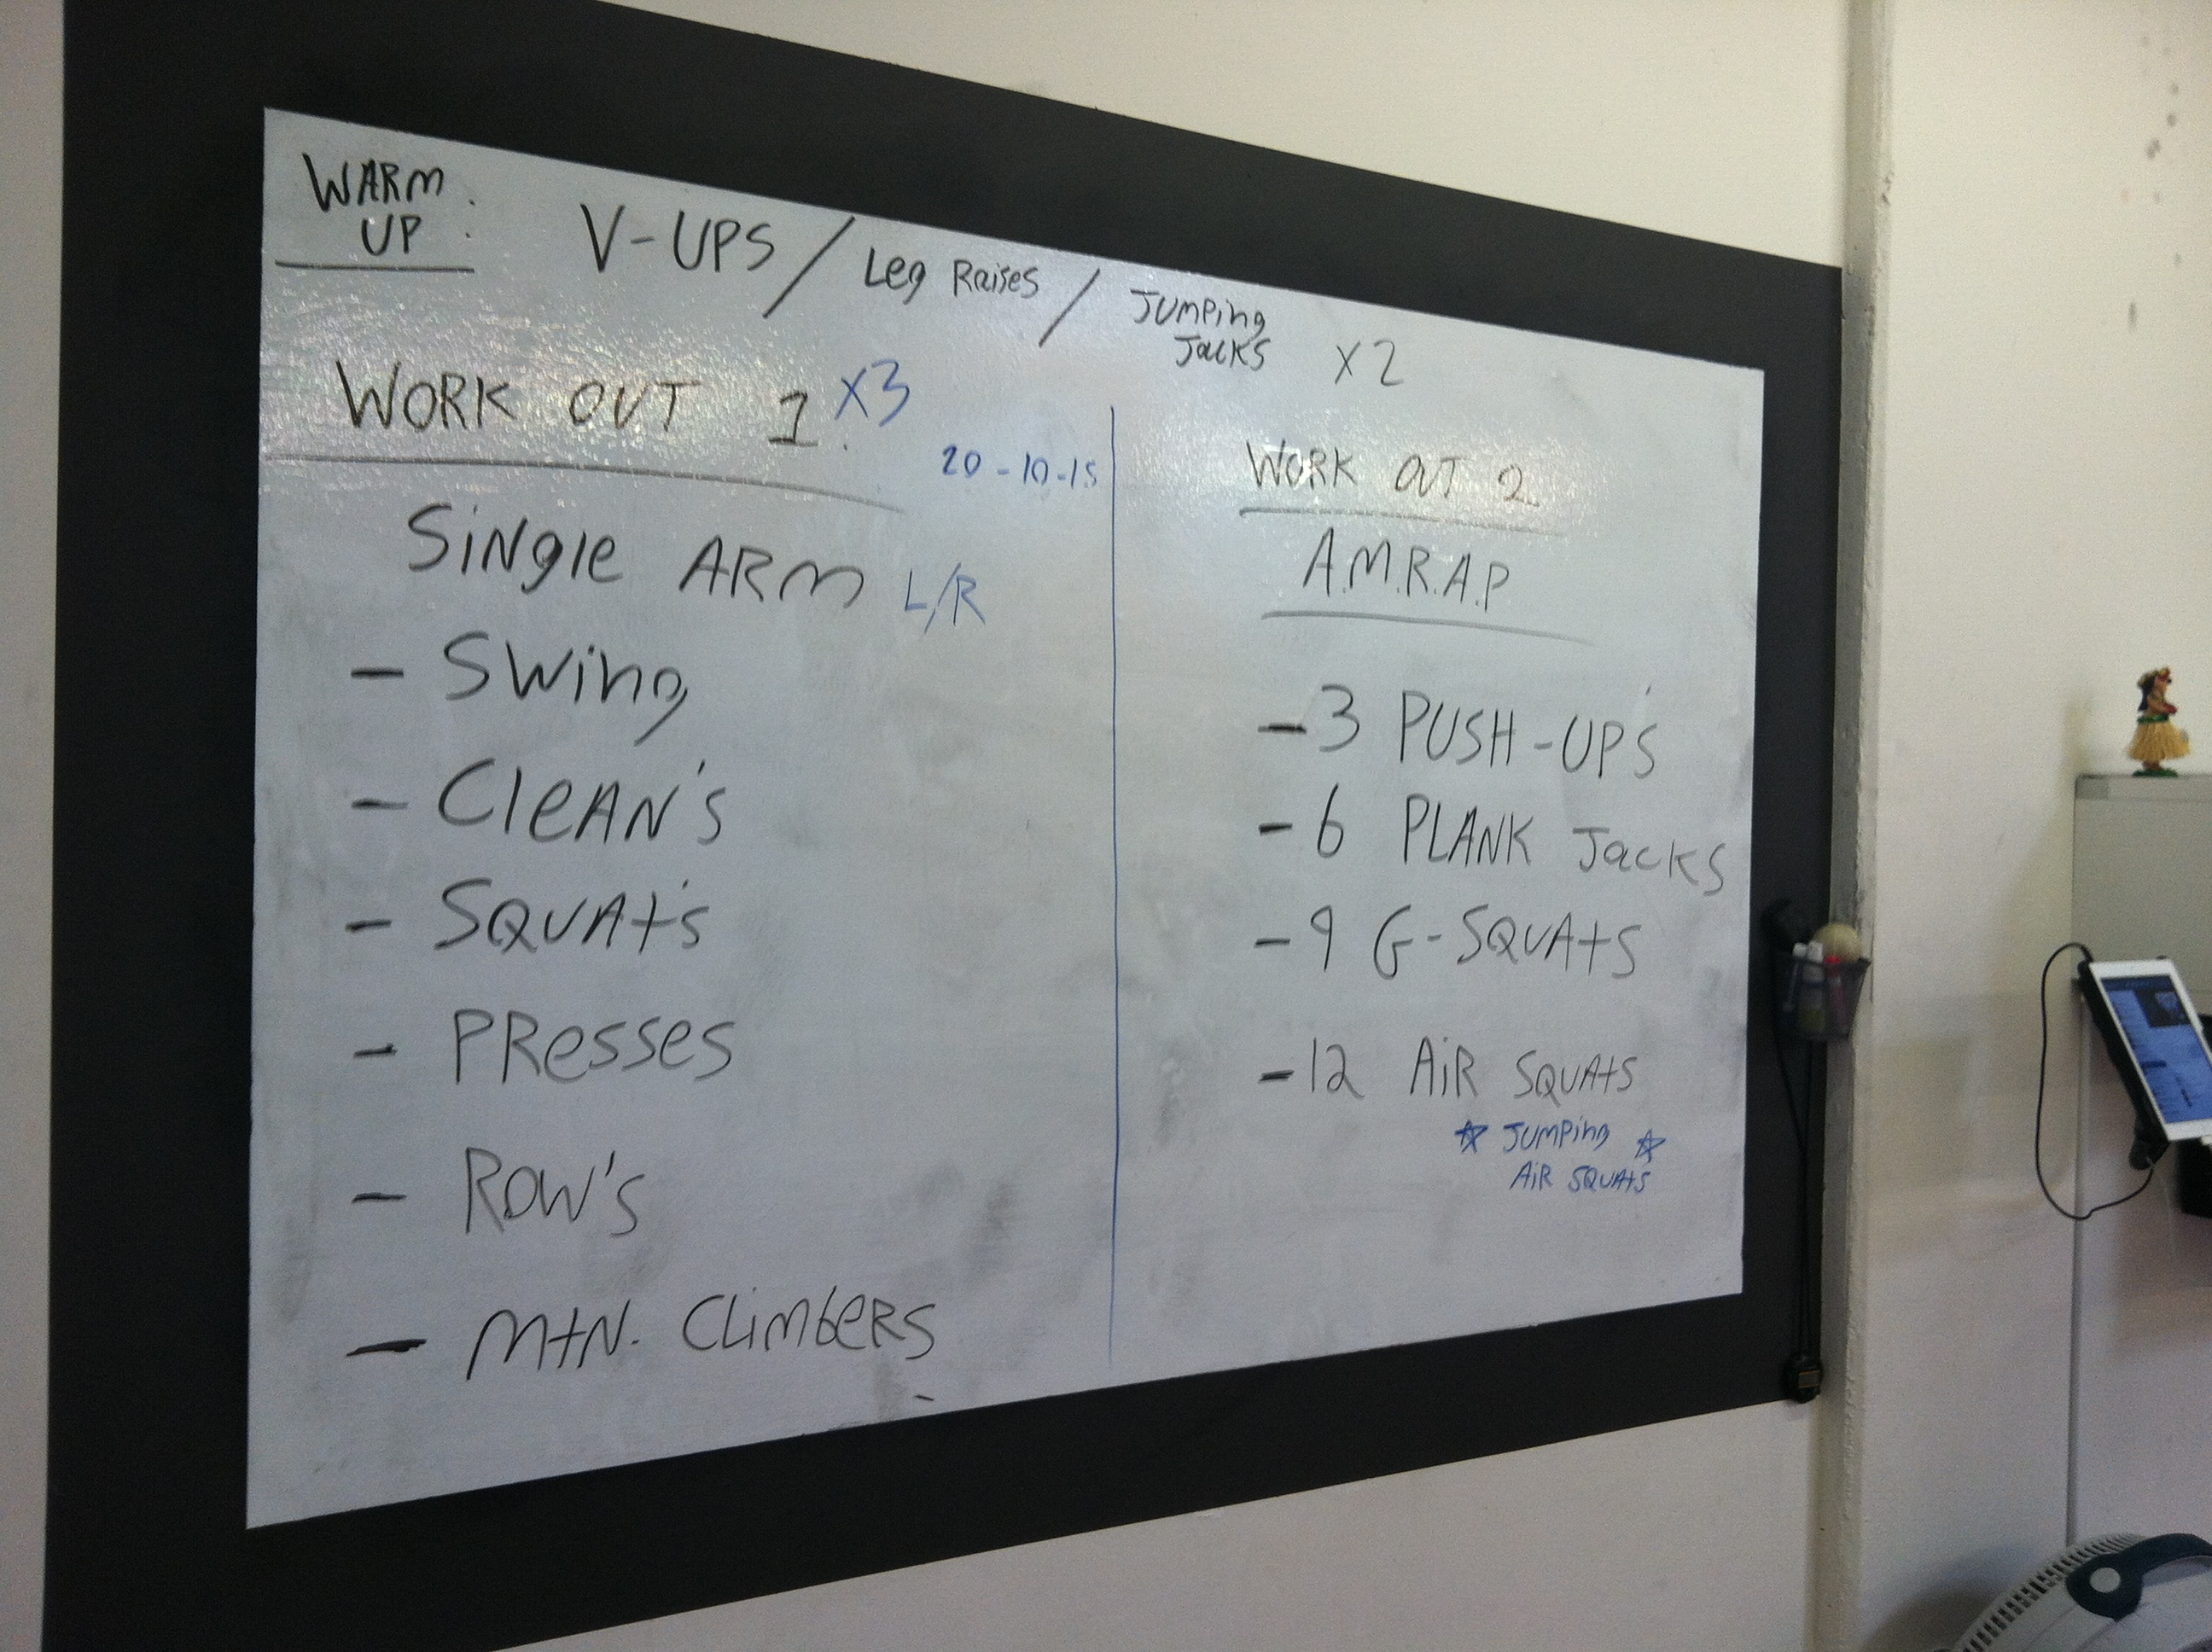 WARM
UP :
V-UPS / Leg Raises / Jumping
Jacks x2
WORK OUT 1. x3
20-10-15
Single ARM L/R
- Swing
- CleAN's
- SQUAt's
- PResses
- ROW's
- MtN. ClimbeRS
WORK OUT 2
A.M.R.A.P
- 3 PUSH-UP'S
- 6 PLANK Jacks
- 9 G-SQUAtS
- 12 AiR SQUAtS
☆ JUMPing ☆
AiR SQUAtS